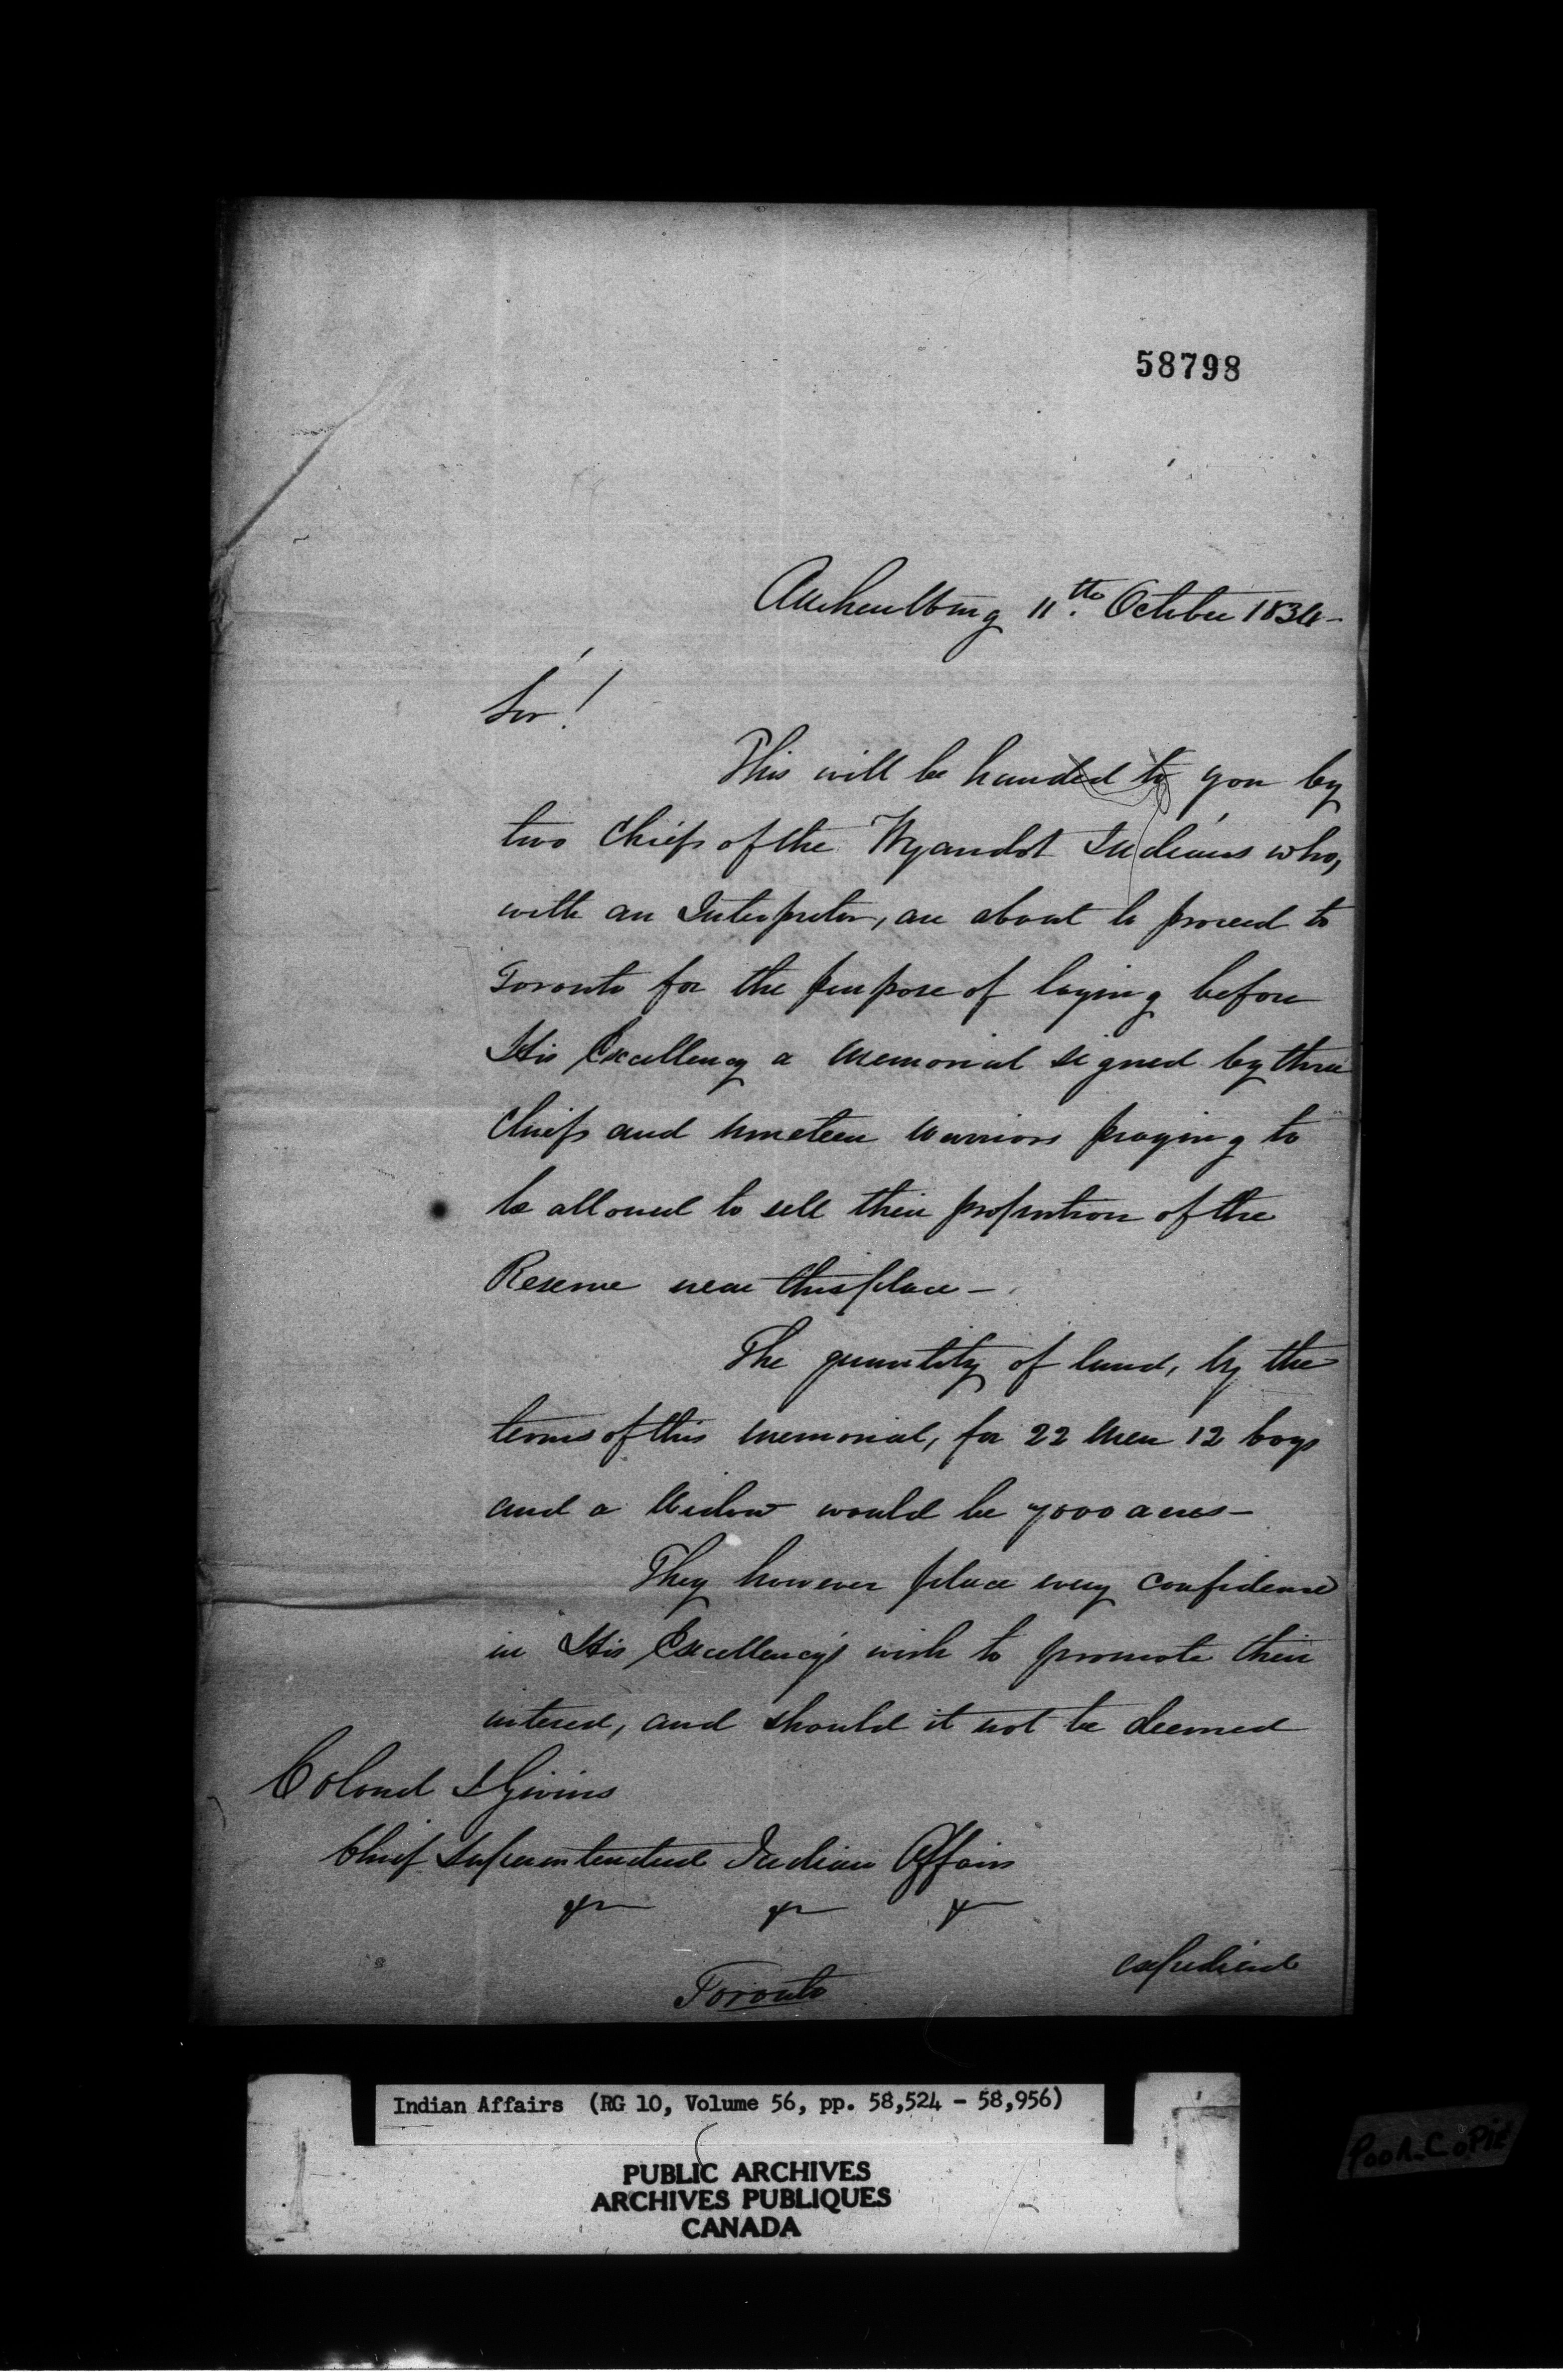 58798
Amherstburg 11th. October 1834-
Sir!
This will be handed to you by
two Chiefs of the Wyandot Indians who,
with an Interpreter, are about to proceed to
Toronto for the purpose of laying before
His Excellency a memorial signed by three
Chiefs and nineteen Warriors praying to
be allowed to sell their proportion of the
Reserve near this place-
The quantity of land, by the
terms of this memorial, for 22 Men 12 boys
and a Widow would be 7000 acres-
They however place every confidence
in His Excellency's wish to promote their
interest, and should it not be deemed
Colonel J Givins
Chief Superintendent Indian Affairs
Toronto
expedient
Indian Affairs (RG 10, Volume 56, pp. 58,524 - 58,956)
PUBLIC ARCHIVES
ARCHIVES PUBLIQUES
CANADA
Poor Copie